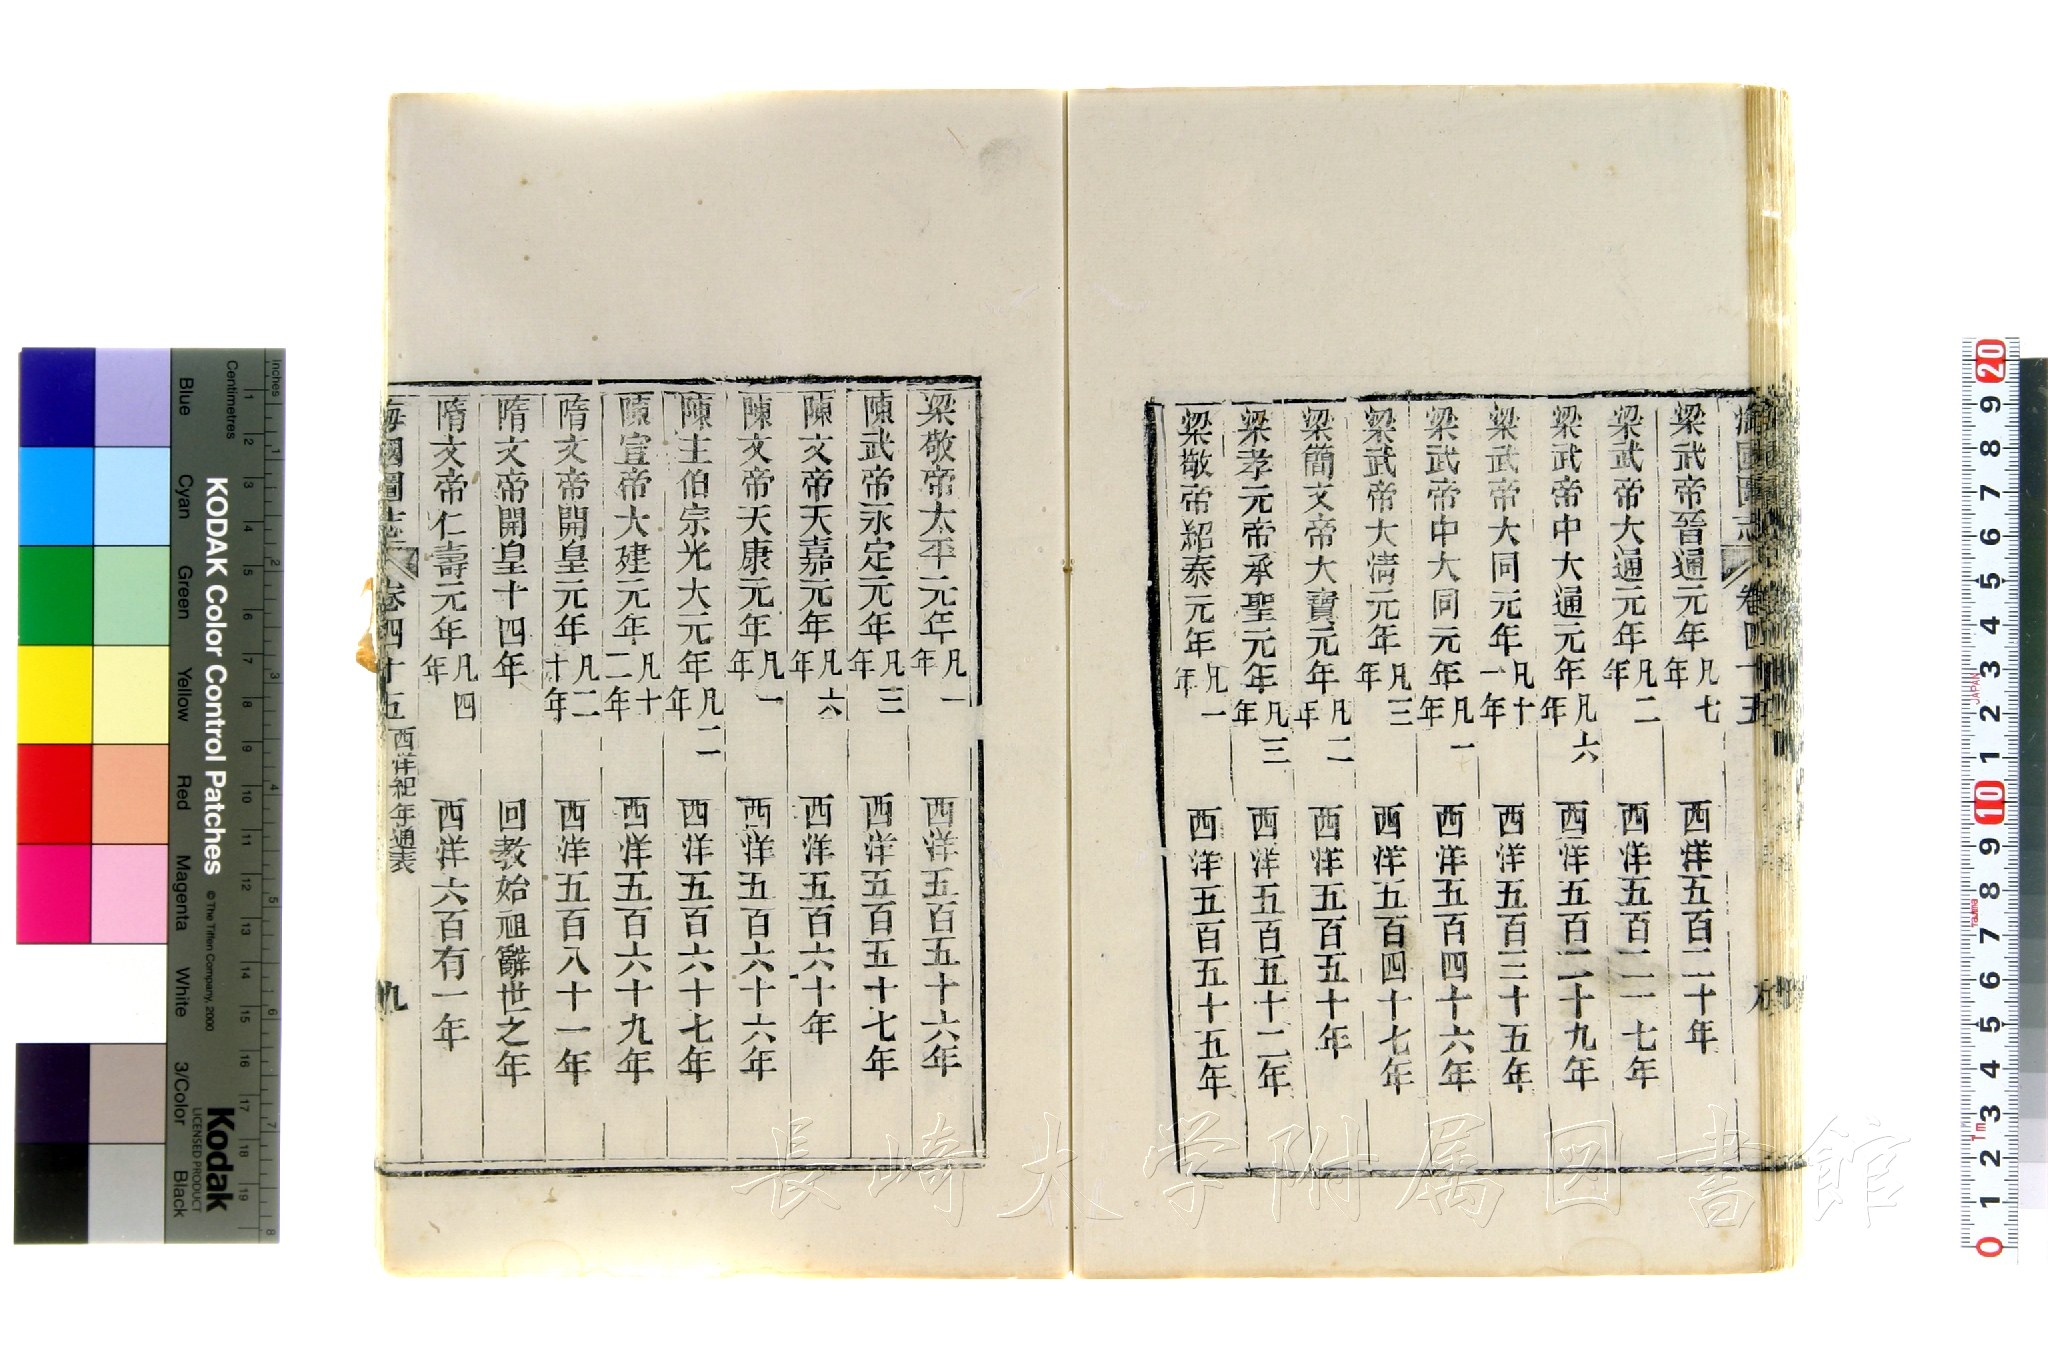 海國圖志 卷四十五
梁武帝晉通元年凡七年 西洋五百二十年
梁武帝大通元年凡二年 西洋五百二一七年
梁武帝中大通元年凡六年 西洋五百二十九年
梁武帝大同元年凡十一年 西洋五百三十五年
梁武帝中大同元年凡一年 西洋五百四十六年
梁武帝大情元年凡三年 西洋五百四十七年
梁簡文帝大寶元年凡二年 西洋五百五十年
梁孝元帝承聖元年凡三年 西洋五百五十二年
梁敬帝紹泰元年凡一年 西洋五百五十五年
梁敬帝太平元年凡一年 西洋五百五十六年
陳武帝永定元年凡三年 西洋五百五十七年
陳文帝天嘉元年凡六年 西洋五百六十年
陳文帝天康元年凡一年 西洋五百六十六年
陳主伯宗光大元年凡二年 西洋五百六十七年
陳宣帝大建元年凡十二年 西洋五百六十九年
隋文帝開皇元年凡二十年 西洋五百八十一年
隋文帝開皇十四年 回教始祖辭世之年
隋文帝仁壽元年凡四年 西洋六百有一年
海國圖志 卷四十五 西洋紀年通表 九
長崎大学附属図書館
KODAK Color Control Patches
© The Tiffen Company, 2000
Kodak
LICENSED PRODUCT
Blue Cyan Green Yellow Red Magenta White 3/Color Black
Inches
1 2 3 4 5 6 7 8
Centimetres
1 2 3 4 5 6 7 8 9 10 11 12 13 14 15 16 17 18 19
20 9 8 7 6 5 4 3 2 1 10 9 8 7 6 5 4 3 2 1 0
JAPAN
1m